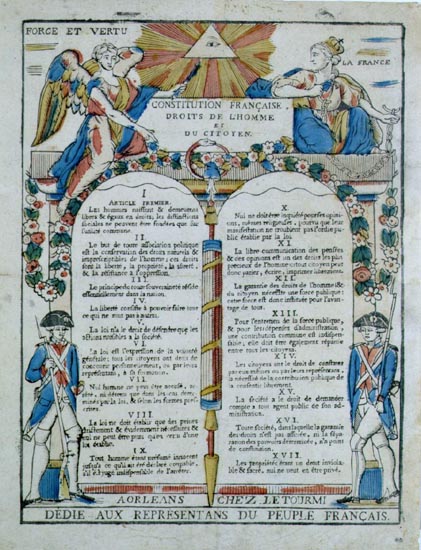 FORCE ET VERTU
LA FRANCE
CONSTITUTION FRANÇAISE.
DROITS DE L'HOMME
ET
DU CITOYEN.
I
ARTICLE PREMIER
Les hommes naissent & demeurent
libres & égaux en droits, les distinctions
sociales ne peuvent être fondées que sur
l'utilité commune.
II
Le but de toute association politique
est la conservation des droits naturels &
imprescriptibles de l'homme; ces droits
sont la liberté, la propriété, la sûreté,
& la résistance à l'oppression.
III
Le principe de toute souveraineté réside
essentiellement dans la nation.
IV
La liberté consiste à pouvoir faire tout
ce qui ne nuit pas à autrui.
V
La loi n'a le droit de défendre que les
actions nuisibles à la société.
VI.
La loi est l'expression de la volonté
générale; tous les citoyens ont droit de
concourir personnellement, ou par leurs
représentans, à sa formation.
VII.
Nul homme ne peut être accusé, ar-
rêté, ni détenu que dans les cas déter-
minés par la loi, & selon les formes pres-
crites.
VIII.
La loi ne doit établir que des peines
strictement & évidemment nécessaires &
nul ne peut être puni qu'en vertu d'une
loi établie.
IX.
Tout homme étant présumé innocent
jusqu'à ce qu'il ait été déclaré coupable,
s'il est jugé indispensable de l'arrêter.
X.
Nul ne doit être inquiété pour ses opini-
ons, mêmes religieuses, pourvu que leur
manifestation ne troublent pas l'ordre pu-
blic établie par la loi.
XI.
La libre communication des pensées
& des opinions est un des droits les plus
précieux de l'homme tout citoyen peut
donc parler, écrire, imprimer librement.
XII.
La garantie des droits de l'homme & du
citoyen nécessite une force publique;
cette force est donc instituée pour l'avan-
tage de tous.
XIII.
Pour l'entretien de la force publique,
& pour les dépenses d'administration,
une contribution commune est indispen-
sable; elle doit être également répartie
entre tous les citoyens.
XIV.
Les citoyens ont le droit de constater
par eux mêmes ou par leurs représentans,
la nécessité de la contribution publique de
la consentir librement.
XV.
La société a le droit de demander
compte à tout agent public de son ad-
ministration.
XVI.
Toute société, dans laquelle la garantie
des droits n'est pas assurée, ni la sépa-
ration des pouvoirs déterminée, n'a point
de constitution.
XVII.
Les propriétés étant un droit inviola-
ble & sacré, nul ne peut en être privé.
A ORLEANS CHEZ LETOURMI
DÉDIÉ AUX REPRÉSENTANS DU PEUPLE FRANÇAIS.